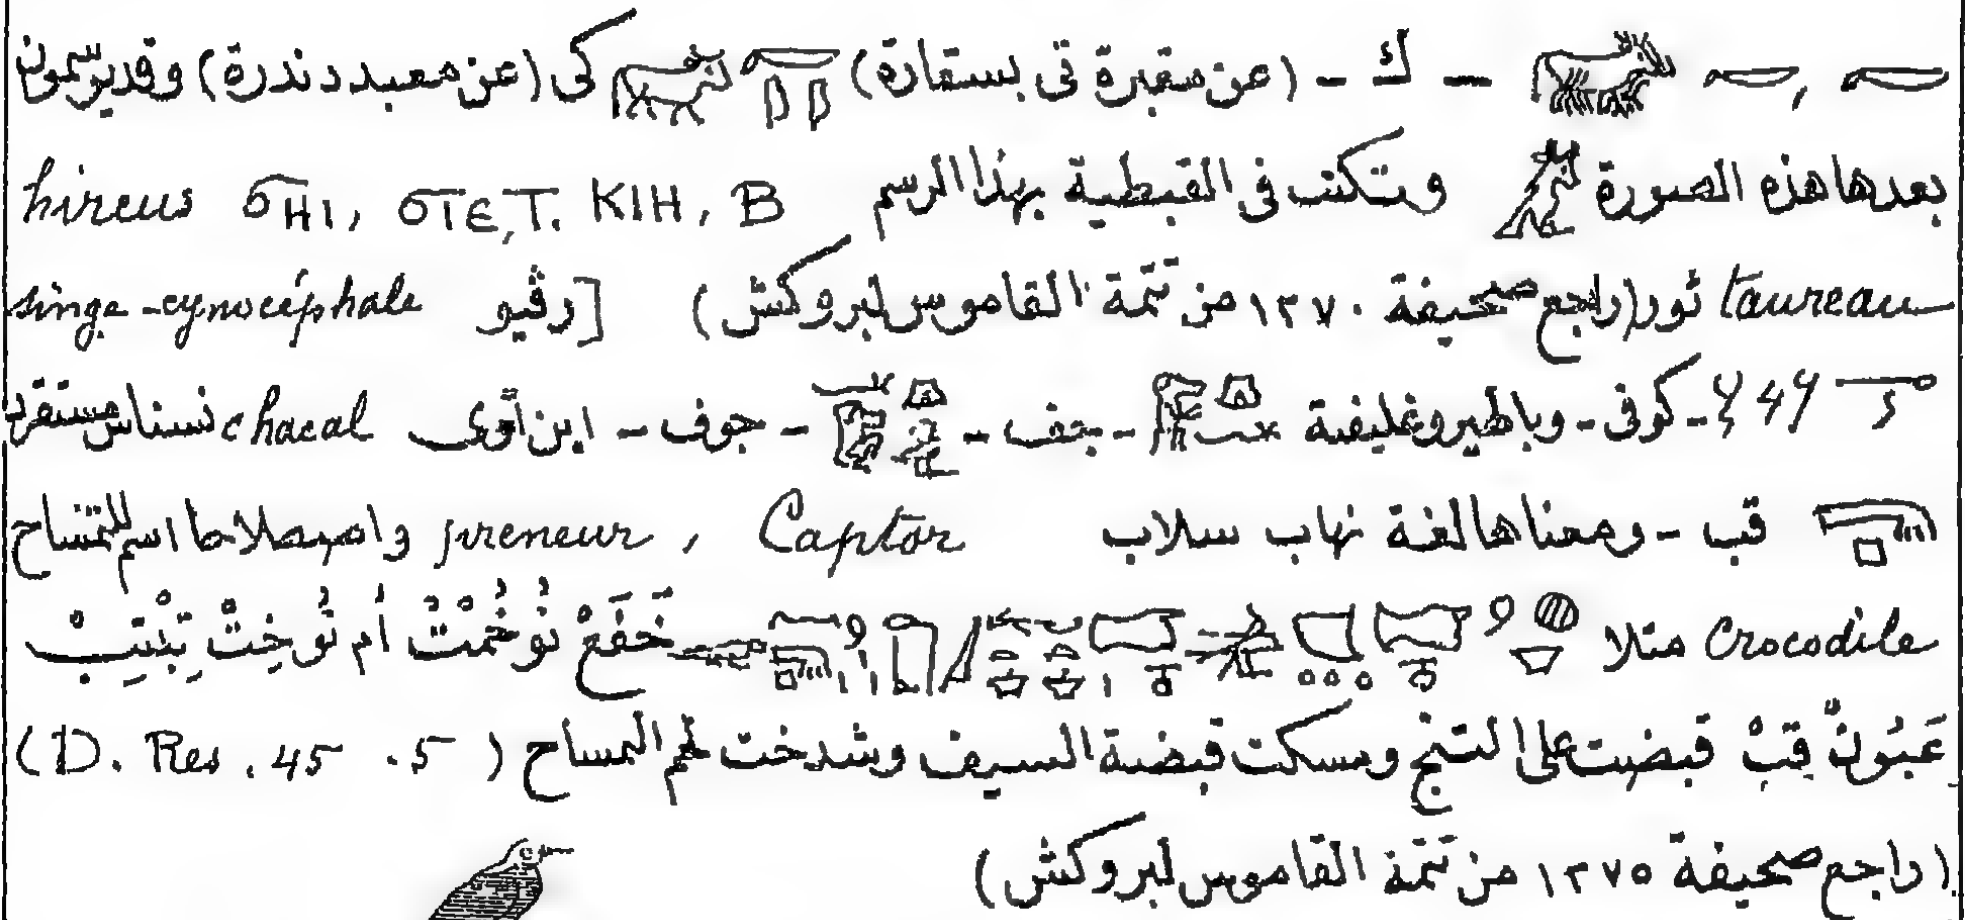 ـ ك ـ (عن مقبرة فى بسقارة) كى (عن معبد دندرة) وقد يرسمون
بعدها هذه الصورة وتكتب فى القبطية بهذا الرسم B ,KIH hircus
taureau ثور (راجع صحيفة ١٢٧٠ من تتمة القاموس لبروكش) [رفيو singe-cynocéphale
ـ كوفى ـ وبالهيروغليفية ـ جف ـ ـ جوف ـ ابن آوى chacal نسناس مستقرد
قب ـ ومعناها لغة نهاب سلاب Captor , preneur واصطلاحا اسم للتمساح
Crocodile مثلا خَفَعْ نُوخُمْتُ أم نُوخِتْ تِبْتِبْ
عَبُونْ قِبْ قبضت على التبج ومسكت قبضة السيف وشدخت لحم التمساح (D. Res. 45 .5)
(راجع صحيفة ١٢٧٥ من تتمة القاموس لبروكش)